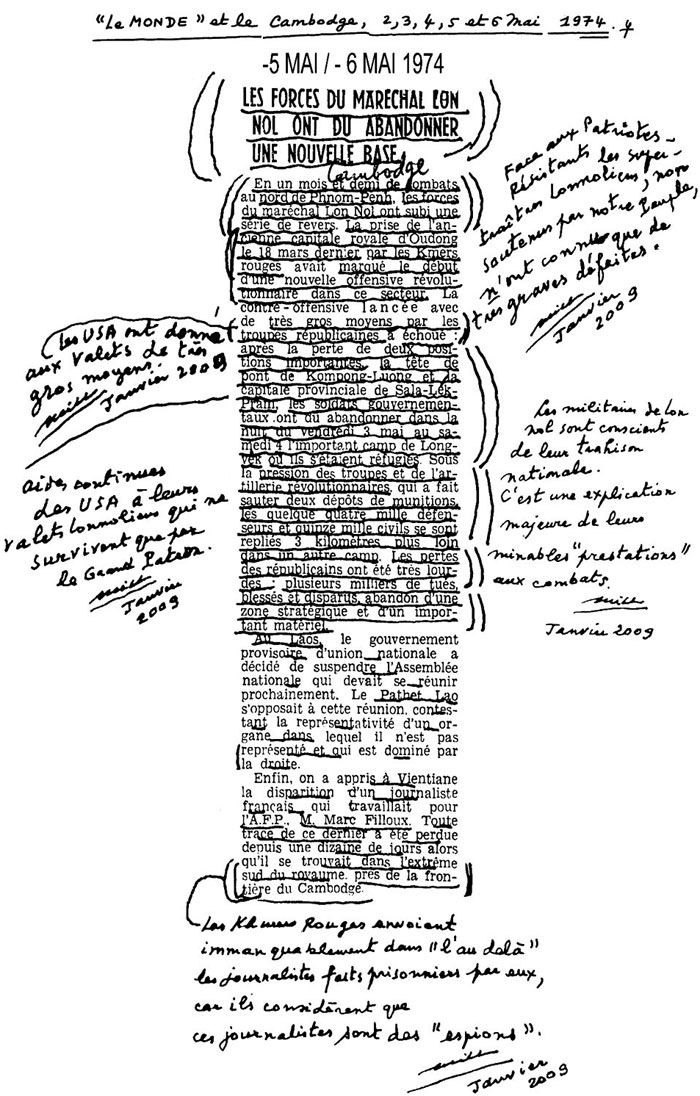 "Le MONDE" et le Cambodge, 2,3,4,5 et 6 Mai 1974.
-5 MAI / - 6 MAI 1974
LES FORCES DU MARECHAL LON
NOL ONT DU ABANDONNER
UNE NOUVELLE BASE
Cambodge
En un mois et demi de combats
au nord de Phnom-Penh, les forces
du maréchal Lon Nol ont subi une
série de revers. La prise de l'an-
cienne capitale royale d'Oudong
le 18 mars dernier par les Kmers
rouges avait marqué le début
d'une nouvelle offensive révolu-
tionnaire dans ce secteur. La
contre-offensive lancée avec
de très gros moyens par les
troupes républicaines a échoué :
après la perte de deux posi-
tions importantes, la tête de
pont de Kompong-Luong et la
capitale provinciale de Sala-Lek-
Pram, les soldats gouvernemen-
taux ont dû abandonner dans la
nuit du vendredi 3 mai au sa-
medi 4 l'important camp de Long-
Vek où ils s'étaient réfugiés. Sous
la pression des troupes et de l'ar-
tillerie révolutionnaires, qui a fait
sauter deux dépôts de munitions,
les quelque quatre mille défen-
seurs et quinze mille civils se sont
repliés 3 kilomètres plus loin
dans un autre camp. Les pertes
des républicains ont été très lour-
des : plusieurs milliers de tués,
blessés et disparus, abandon d'une
zone stratégique et d'un impor-
tant matériel.
Au Laos, le gouvernement
provisoire d'union nationale a
décidé de suspendre l'Assemblée
nationale qui devait se réunir
prochainement. Le Pathet Lao
s'opposait à cette réunion, contes-
tant la représentativité d'un or-
gane dans lequel il n'est pas
représenté et qui est dominé par
la droite.
Enfin, on a appris à Vientiane
la disparition d'un journaliste
français qui travaillait pour
l'A.F.P., M. Marc Filloux. Toute
trace de ce dernier a été perdue
depuis une dizaine de jours alors
qu'il se trouvait dans l'extrême
sud du royaume, près de la fron-
tière du Cambodge.
Face aux Patriotes-
Résistants les super-
traîtres lonnoliens, non
soutenus par notre Peuple,
n'ont connu que de
très graves défaites.
Janvier
2009
Les USA ont donné
aux valets de très
gros moyens.
Janvier 2009
aides continues
des USA à leurs
valets lonnoliens qui ne
survivent que par
le Grand Patron.
Janvier
2009
Les militaires de Lon
nol sont conscients
de leur trahison
nationale.
C'est une explication
majeure de leurs
minables "prestations"
aux combats.
Janvier 2009
Les Khmers Rouges envoient
immanquablement dans "l'au delà"
les journalistes faits prisonniers par eux,
car ils considèrent que
ces journalistes sont des "espions".
Janvier
2009